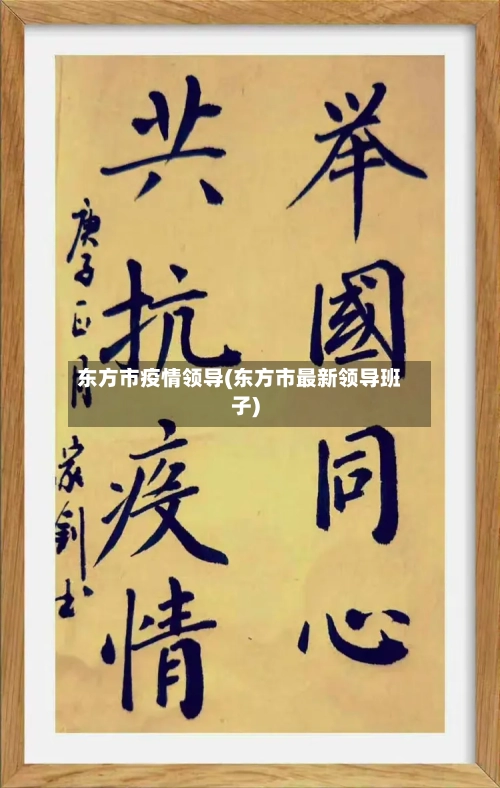 举國同心
共抗疫情
庚子正月 家剑书
东方市疫情领导(东方市最新领导班
子)